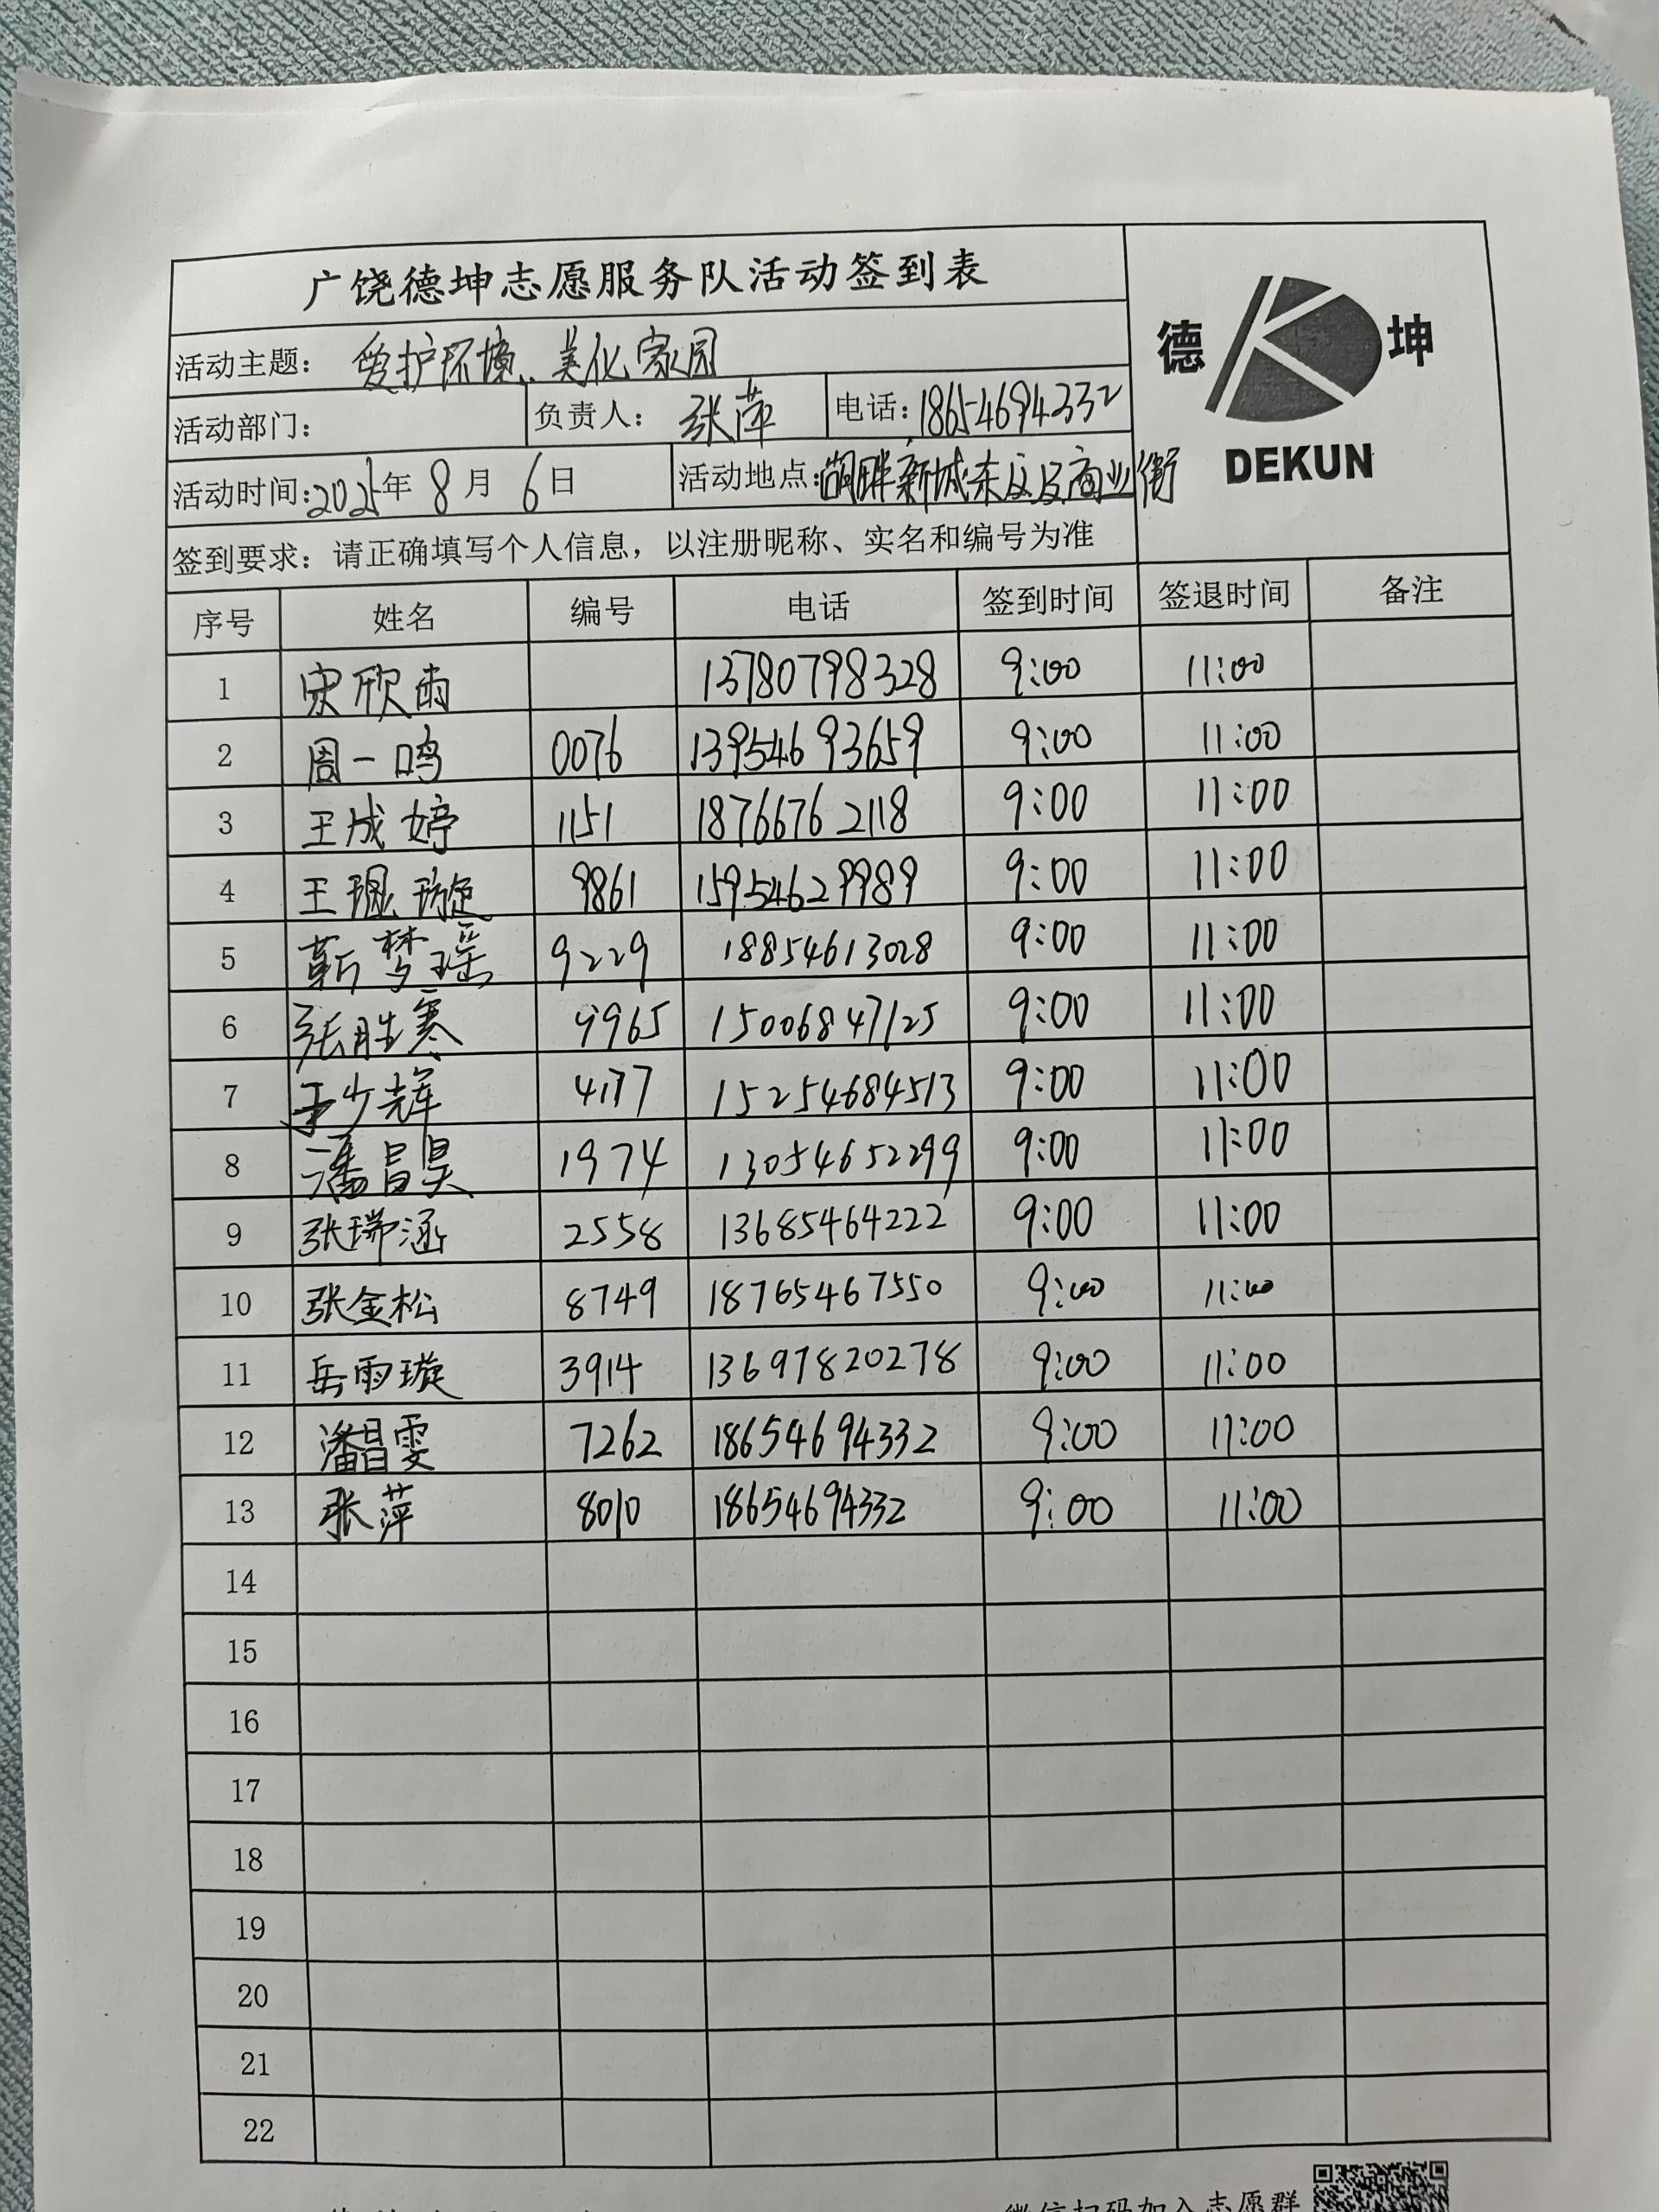 广饶德坤志愿服务队活动签到表
德 坤
DEKUN
活动主题： 爱护环境、美化家园
活动部门： 负责人： 张萍 电话：18654694332
活动时间：2025年 8月 6日 活动地点：湖畔新城东区及商业街
签到要求：请正确填写个人信息，以注册昵称、实名和编号为准
序号 姓名 编号 电话 签到时间 签退时间 备注
1 宋欣雨 13780798328 9:00 11:00
2 周一鸣 0076 13954693659 9:00 11:00
3 王成婷 1151 18766762118 9:00 11:00
4 王 璇 9861 15954629989 9:00 11:00
5 靳梦瑶 9229 18854613028 9:00 11:00
6 张胜寒 9965 15006847125 9:00 11:00
7 少辉 4177 15254684513 9:00 11:00
8 潘昌昊 1974 13054652299 9:00 11:00
9 张瑞涵 2558 13685464222 9:00 11:00
10 张金松 8749 18765467550 9:00 11:00
11 岳雨璇 3914 13697820278 9:00 11:00
12 潘昌雯 7262 18654694332 9:00 11:00
13 张萍 8010 18654694332 9:00 11:00
14
15
16
17
18
19
20
21
22
微信扫码加入志愿群